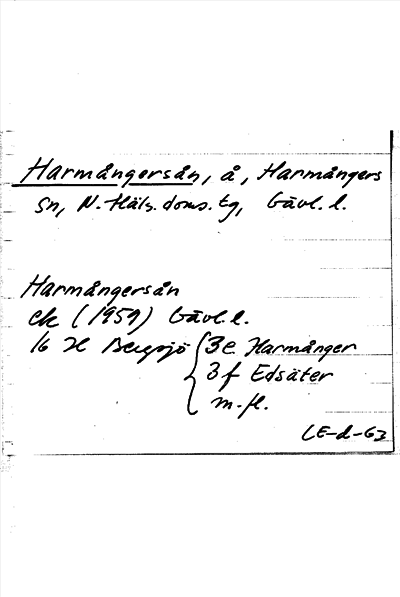 Harmångersån, å, Harmångers
sn, N. Häls. doms. tg, Gävl. l.
Harmångersån
ek (1959) Gävl. l.
16 H Bergsjö { 3 e Harmånger
3 f Edsäter
m. fl.
LE-d-63